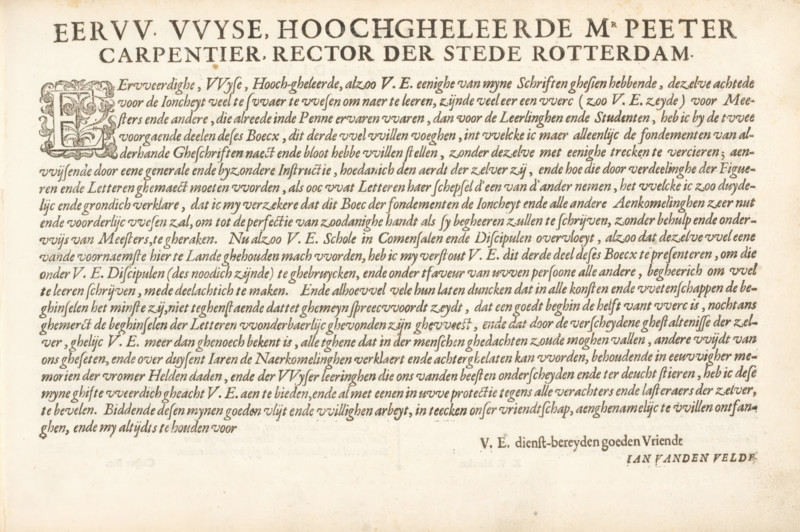 EERVV. VVYSE, HOOCHGHELEERDE Mr PEETER
CARPENTIER, RECTOR DER STEDE ROTTERDAM.
EErvveerdighe, VVyse, Hooch-gheleerde, alzoo V. E. eenighe van myne Schriften ghesien hebbende, dezelve achtede
voor de Ioncheyt veel te svvaer te vvesen om naer te leeren, zijnde veel eer een vverc (zoo V. E. zeyde) voor Mee-
sters ende andere, die alreede inde Penne ervaren vvaren, dan voor de Leerlinghen ende Studenten, heb ic by de tvvee
voorgaende deelen deses Boecx, dit derde vvel vvillen voeghen, int vvelcke ic maer alleenlijc de fondementen van al-
derhande Gheschriften naect ende bloot hebbe vvillen stellen, zonder dezelve met eenighe trecken te vercieren; aen-
vvijsende door eene generale ende byzondere Instructie, hoedanich den aerdt der zelver zij, ende hoe die door verdeelinghe der Figue-
ren ende Letteren ghemaect moeten vvorden, als ooc vvat Letteren haer schepsel d'een van d'ander nemen, het vvelcke ic zoo duyde-
lijc ende grondich verklare, dat ic my verzekere dat dit Boec der fondementen de Ioncheyt ende alle andere Aenkomelinghen zeer nut
ende voorderlijc vvesen zal, om tot de perfectie van zoodanighe handt als sy begheeren zullen te schrijven, zonder behulp ende onder-
vvijs van Meesters, te gheraken. Nu alzoo V. E. Schole in Comensalen ende Discipulen overvloeyt, alzoo dat dezelve vvel eene
vande voornaemste hier te Lande ghehouden mach vvorden, heb ic my verstout V. E. dit derde deel deses Boecx te presenteren, om die
onder V. E. Discipulen (des noodich zijnde) te ghebruycken, ende onder tfaveur van uvven persoone alle andere, begheerich om vvel
te leeren schrijven, mede deelachtich te maken. Ende alhoevvel vele hun laten duncken dat in alle konsten ende vvetenschappen de be-
ghinselen het minste zij, niet teghenstaende dattet ghemeyn spreecvvoordt zeydt, dat een goedt beghin de helft vant vverc is, nochtans
ghemerct de beghinselen der Letteren vvonderbaerlijc ghevonden zijn ghevveest, ende dat door de verscheydene ghestaltenisse der zel-
ver, ghelijc V. E. meer dan ghenoech bekent is, alle tghene dat in der menschen ghedachten zoude moghen vallen, andere vvijdt van
ons gheseten, ende over duysent Iaren de Naerkomelinghen verklaert ende achterghelaten kan vvorden, behoudende in eeuvvigher me-
morien der vromer Helden daden, ende der VVyser leeringhen die ons vanden beesten onderscheyden ende ter deucht stieren, heb ic dese
myne ghifte vveerdich gheacht V. E. aen te bieden, ende al met eenen in uvve protectie tegens alle verachters ende lasteraers der zelver,
te bevelen. Biddende desen mynen goeden vlijt ende vvillighen arbeyt, in teecken onser vriendtschap, aenghenamelijc te vvillen ontfan-
ghen, ende my altijdts te houden voor
V. E. dienst-bereyden goeden Vriendt
IAN VANDEN VELDE